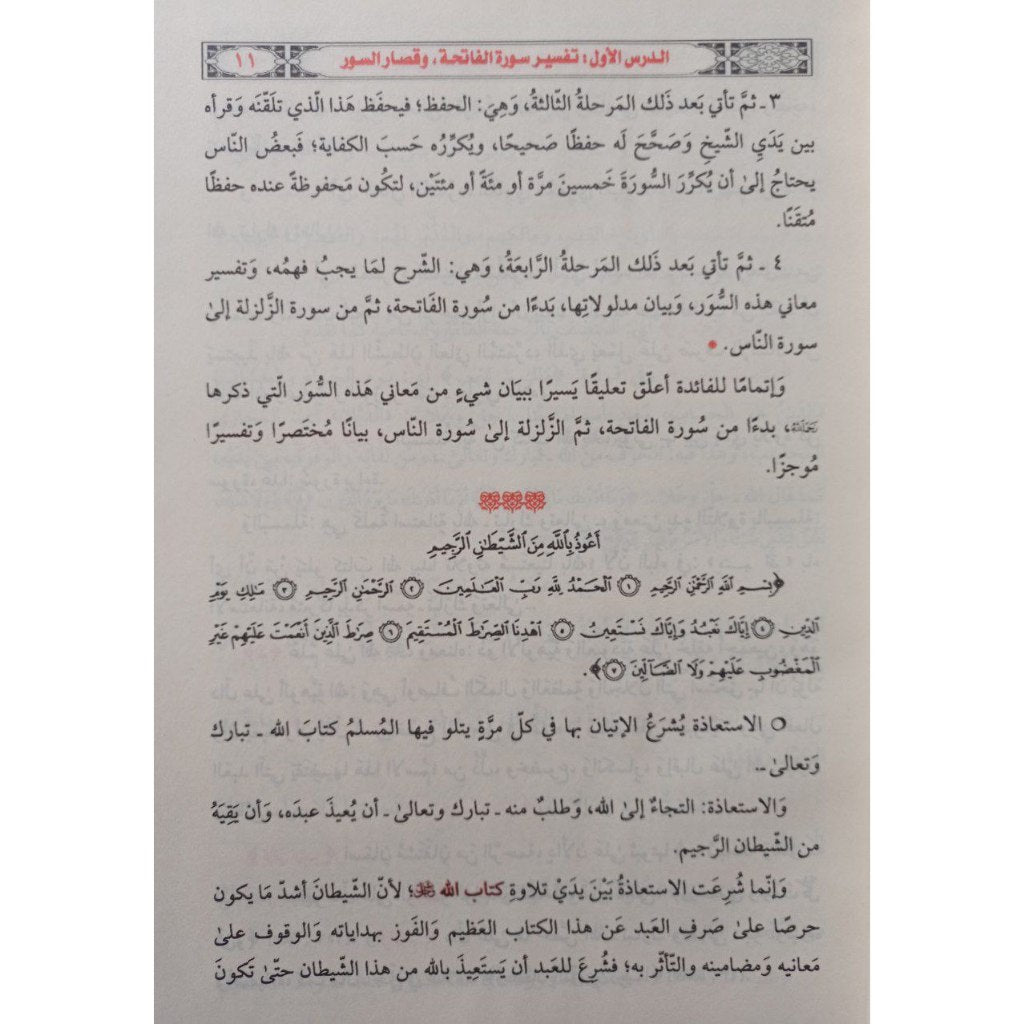 الدرس الأول: تفسير سورة الفاتحة، وقصار السور ١١
٣ ـ ثمَّ تأتي بَعد ذَلك المَرحلةُ الثّالثةُ، وَهِيَ: الحفظ؛ فيحفَظ هَذا الّذي تلَقّنَه وَقرأه
بين يَدَيِ الشّيخِ وَصَحَّحَ لَه حفظًا صَحيحًا، ويُكرِّرُه حَسبَ الكفاية؛ فَبعضُ النّاس
يحتاجُ إلىٰ أن يُكرِّرَ السُّورَةَ خَمسينَ مرَّة أو مئَةً أو مئتَيْن، لتكُون مَحفوظةً عنده حفظًا
مُتقَنًا.
٤ ـ ثمَّ تأتي بَعد ذَلك المَرحلةُ الرَّابعَةُ، وَهي: الشّرح لمَا يجبُ فهمُه، وَتفسير
معاني هذه السُّوَر، وَبيان مدلولاتِها، بَدءًا من سُورة الفَاتحة، ثمَّ من سورة الزَّلزلة إلىٰ
سورة النّاس.
وَإتمامًا للفائدة أعلّق تعليقًا يَسيرًا ببيَان شيءٍ من مَعاني هَذه السُّوَر الّتي ذكرها
رَحِمَهُ اللَّهُ، بدءًا من سُورة الفاتحة، ثمَّ الزَّلزلة إلىٰ سُورة النّاس، بيانًا مُختَصرًا وَتفسيرًا
مُوجزًا.
أَعُوذُ بِٱللَّهِ مِنَ ٱلشَّيْطَٰنِ ٱلرَّجِيمِ
﴿بِسْمِ ٱللَّهِ ٱلرَّحْمَٰنِ ٱلرَّحِيمِ ۝١ ٱلْحَمْدُ لِلَّهِ رَبِّ ٱلْعَٰلَمِينَ ۝٢ ٱلرَّحْمَٰنِ ٱلرَّحِيمِ ۝٣ مَٰلِكِ يَوْمِ
ٱلدِّينِ ۝٤ إِيَّاكَ نَعْبُدُ وَإِيَّاكَ نَسْتَعِينُ ۝٥ ٱهْدِنَا ٱلصِّرَٰطَ ٱلْمُسْتَقِيمَ ۝٦ صِرَٰطَ ٱلَّذِينَ أَنْعَمْتَ عَلَيْهِمْ غَيْرِ
ٱلْمَغْضُوبِ عَلَيْهِمْ وَلَا ٱلضَّآلِّينَ ۝٧﴾.
○ الاستعاذة يُشرَعُ الإتيان بها في كلّ مرَّةٍ يتلو فيها المُسلمُ كتابَ الله ـ تبارك
وَتعالىٰ ـ.
وَالاستعاذة: التجاءٌ إلىٰ الله، وَطلبٌ منه ـ تبارك وتعالىٰ ـ أن يُعيذَ عبدَه، وَأن يَقِيَهُ
من الشّيطان الرَّجيم.
وَإنّما شُرِعَت الاستعاذةُ بَيْنَ يدَيْ تلاوةِ كتاب الله ﷻ؛ لأنّ الشّيطانَ أشدّ مَا يكون
حرصًا علىٰ صَرفِ العبد عَن هذا الكتاب العَظيم وَالفَوز بهداياته وَالوقوف علىٰ
معانيه وَمضامينه والتّأثّر به؛ فشُرعَ للعبد أن يَستَعِيذَ بالله من هذا الشّيطان حتّىٰ تَكونَ